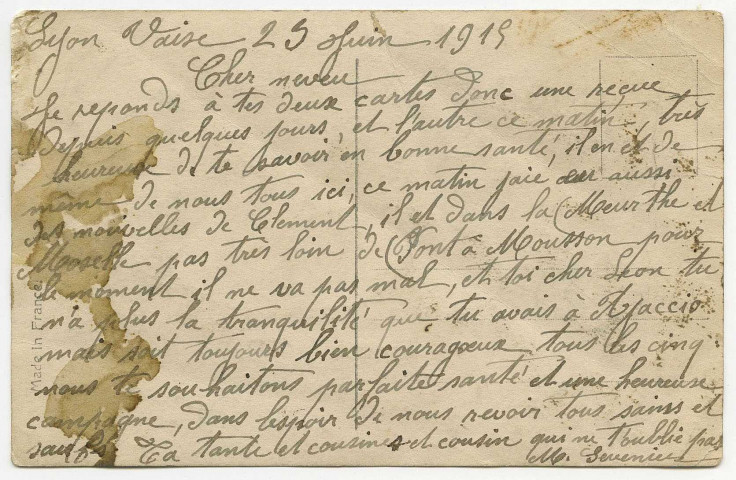 Lyon Vaise 25 Juin 1915
Cher neveu
Je reponds à tes deux cartes donc une reçue
depuis quelques jours, et l'autre ce matin, très
heureuse de te savoir en bonne santé, il en et de
même de nous tous ici, ce matin jaie eu aussi
des nouvelles de Clement, il et dans la Meurthe et
Moselle pas très loin de Pont à Mousson pour
le moment il ne va pas mal, et toi cher Leon tu
n'a plus la tranquilité que tu avais à Ajaccio
mais soit toujours bien couragoeux, tous les cinq
nous te souhaitons parfaite santé et une heureuse
campagne, dans lespoir de nous revoir tous sains et
saufs Ta tante et cousines et cousin qui ne t'oublie pas
M.
Made in France